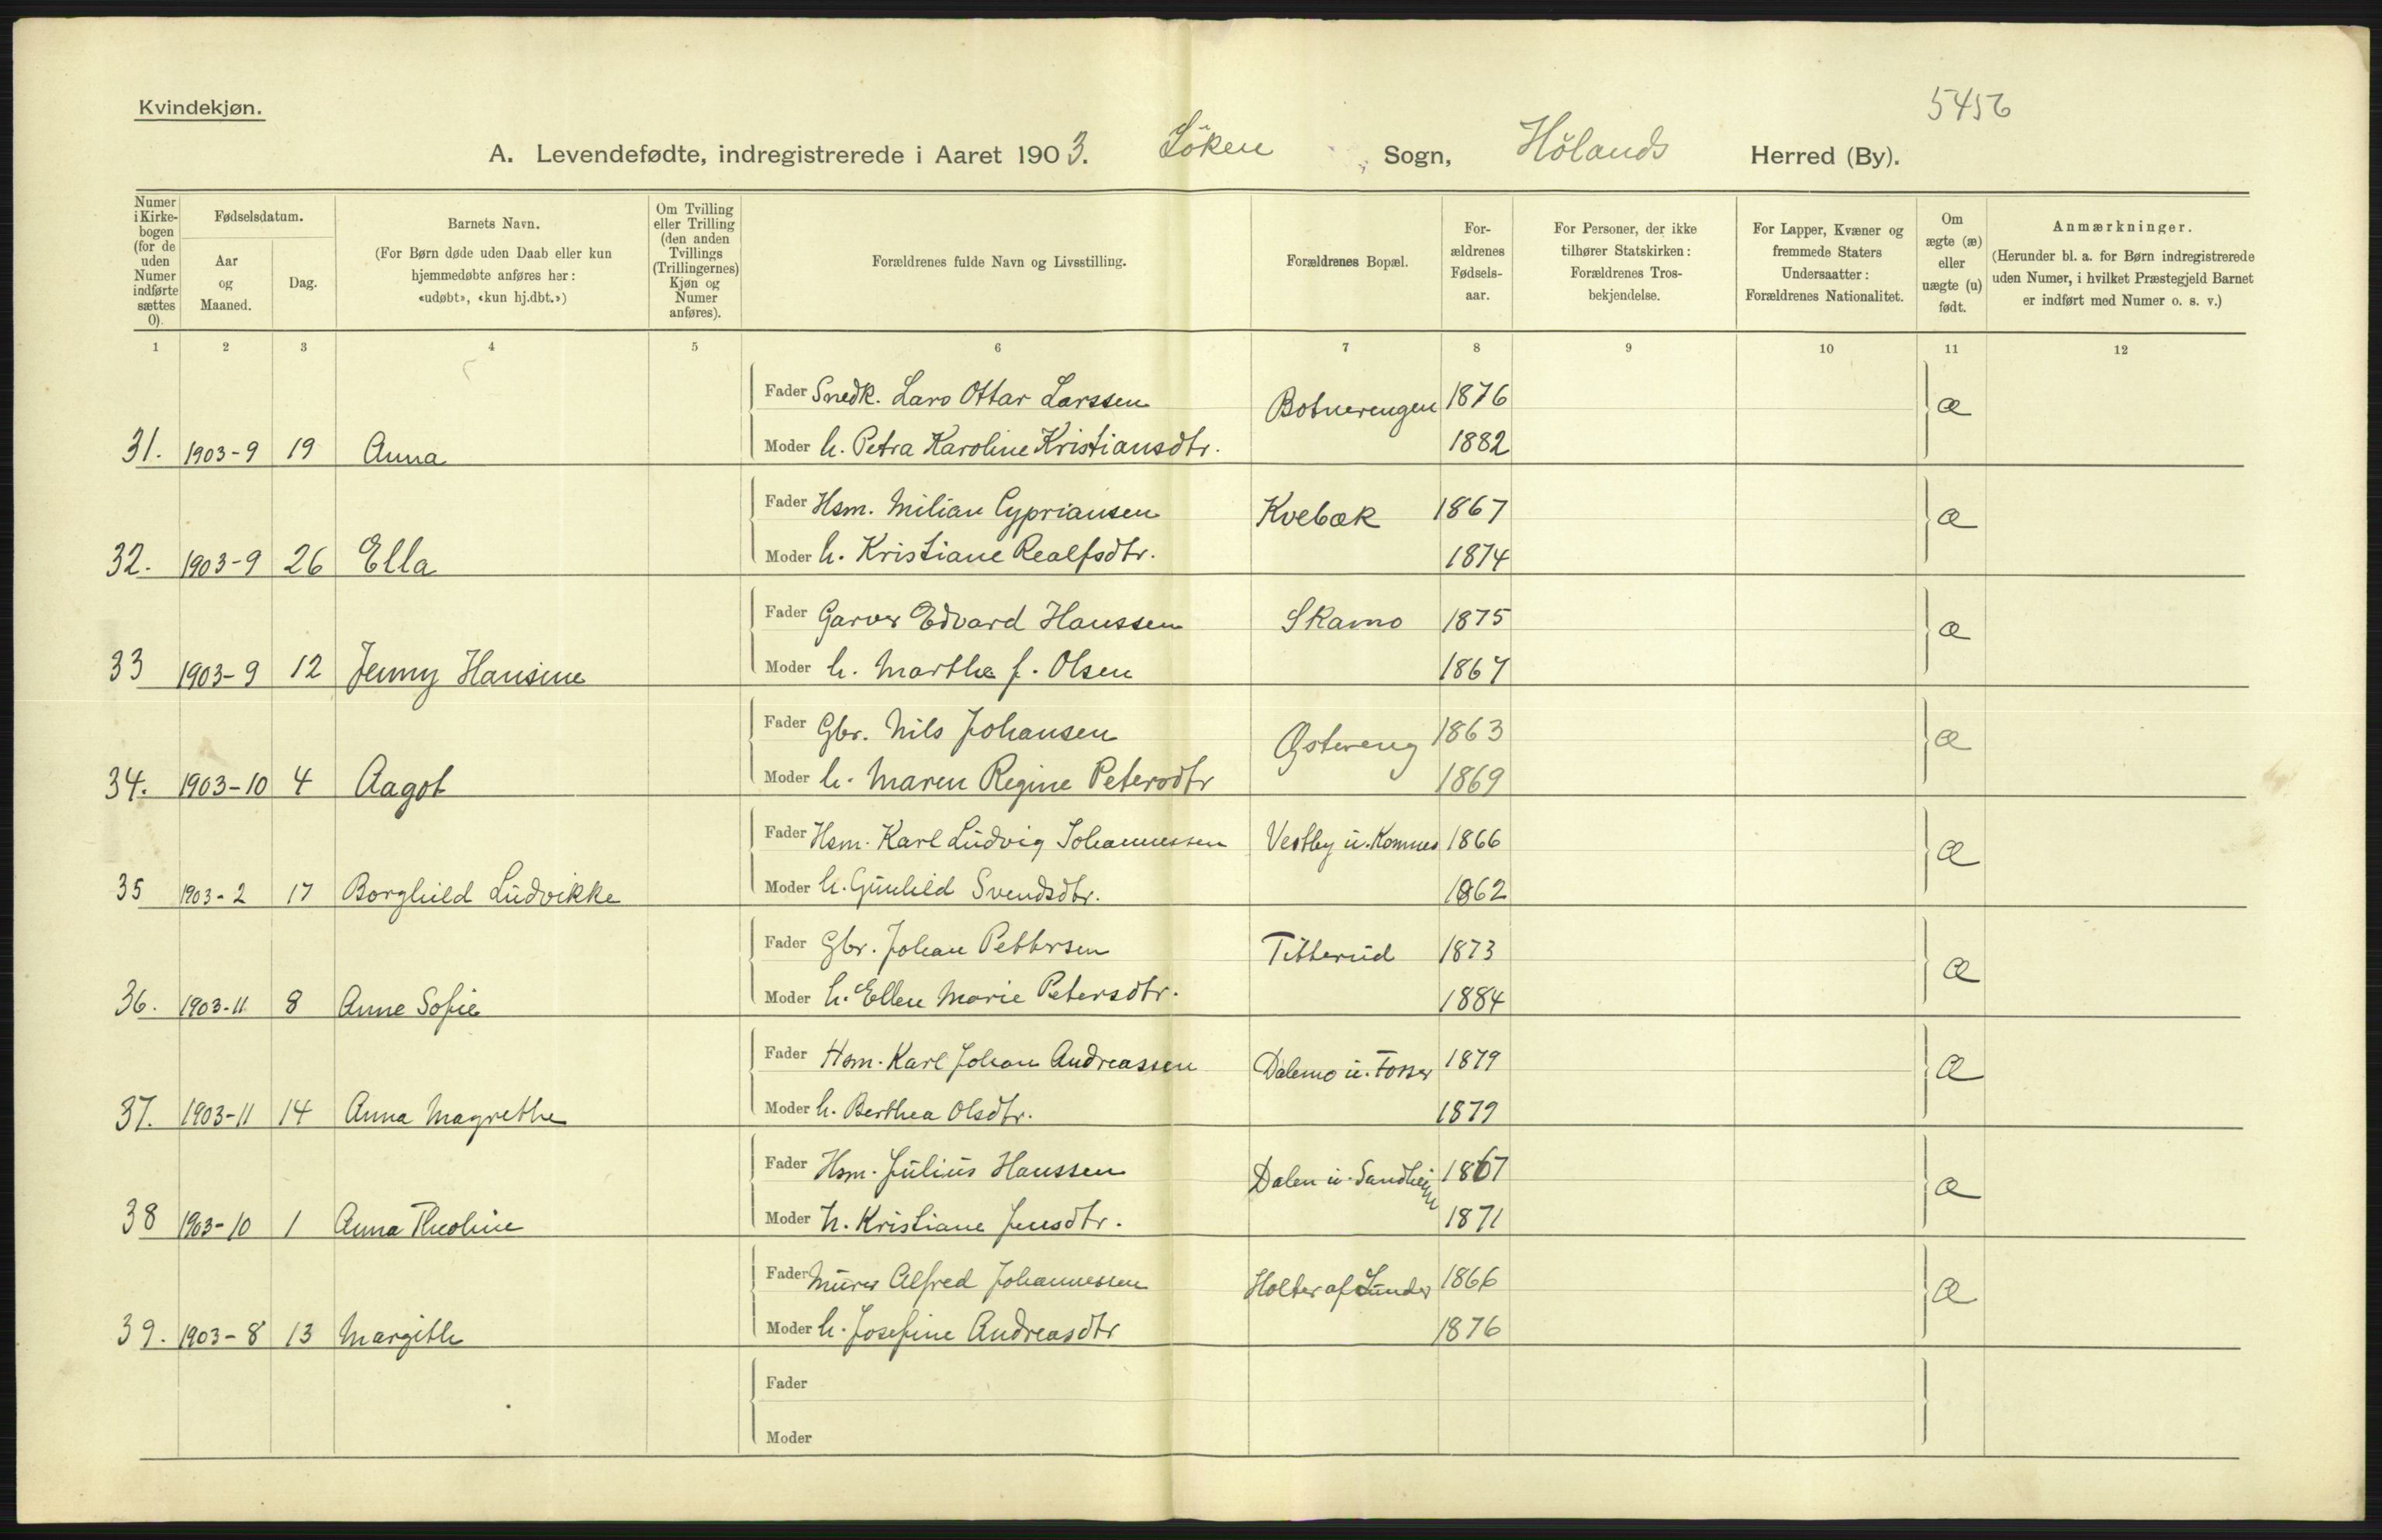 5456
Kvindekjøn.
A. Levendefødte, indregistrerede i Aaret 1903. Löken Sogn, Hölands Herred (By).
Numer i Kirkebogen (for de uden Numer indførte sættes 0).
Fødselsdatum.
Aar og Maaned.
Dag.
Barnets Navn.
(For Børn døde uden Daab eller kun
hjemmedøbte anføres her:
«udøbt», «kun hj.dbt.»)
Om Tvilling
eller Trilling
(den anden
Tvillings
(Trillingernes)
Kjøn og
Numer
anføres).
Forældrenes fulde Navn og Livsstilling.
Forældrenes Bopæl.
For-
ældrenes
Fødsels-
aar.
For Personer, der ikke
tilhører Statskirken:
Forældrenes Tros-
bekjendelse.
For Lapper, Kvæner og
fremmede Staters
Undersaatter:
Forældrenes Nationalitet.
Om
ægte (æ)
eller
uægte (u)
født.
Anmærkninger.
(Herunder bl. a. for Børn indregistrerede
uden Numer, i hvilket Præstegjeld Barnet
er indført med Numer o. s. v.)
1 2 3 4 5 6 7 8 9 10 11 12
Fader Snedk. Lars Ottar Larssen Botnerengen 1876 æ
31. 1903-9 19 Anna Moder h. Petra Karoline Kristiansdtr. 1882
Fader Hsm. Milian Cypriansen Kvebæk 1867 æ
32. 1903-9 26 Ella Moder h. Kristiane Realfsdtr. 1874
Fader Garver Edvard Hanssen Skamo 1875 æ
33 1903-9 12 Jenny Hansine Moder h. Marthe f. Olsen 1867
Fader Gbr. Nils Johansen Østereng 1863 æ
34. 1903-10 4 Aagot Moder h. Maren Regine Petersdtr 1869
Fader Hsm. Karl Ludvig Johannessen Vestby u. Komnes 1866 æ
35 1903-2 17 Borghild Ludvikke Moder h. Gunhild Svendsdtr. 1862
Fader Gbr. Johan Pettersen Titterud 1873 æ
36. 1903-11 8 Anne Sofie Moder h. Ellen Marie Petersdtr. 1884
Fader Hsm. Karl Johan Andreassen Dalemo u. Fosser 1879 æ
37. 1903-11 14 Anna Magrethe Moder h. Berthea Olsdtr. 1879
Fader Hsm. Julius Hanssen Dalen u. Sandheim 1867 æ
38 1903-10 1 Anna Theoline Moder h. Kristiane Jensdtr. 1871
Fader Murer Alfred Johannessen Holter af Lunder 1866 æ
39. 1903-8 13 Margith Moder h. Josefine Andreasdtr 1876
Fader
Moder